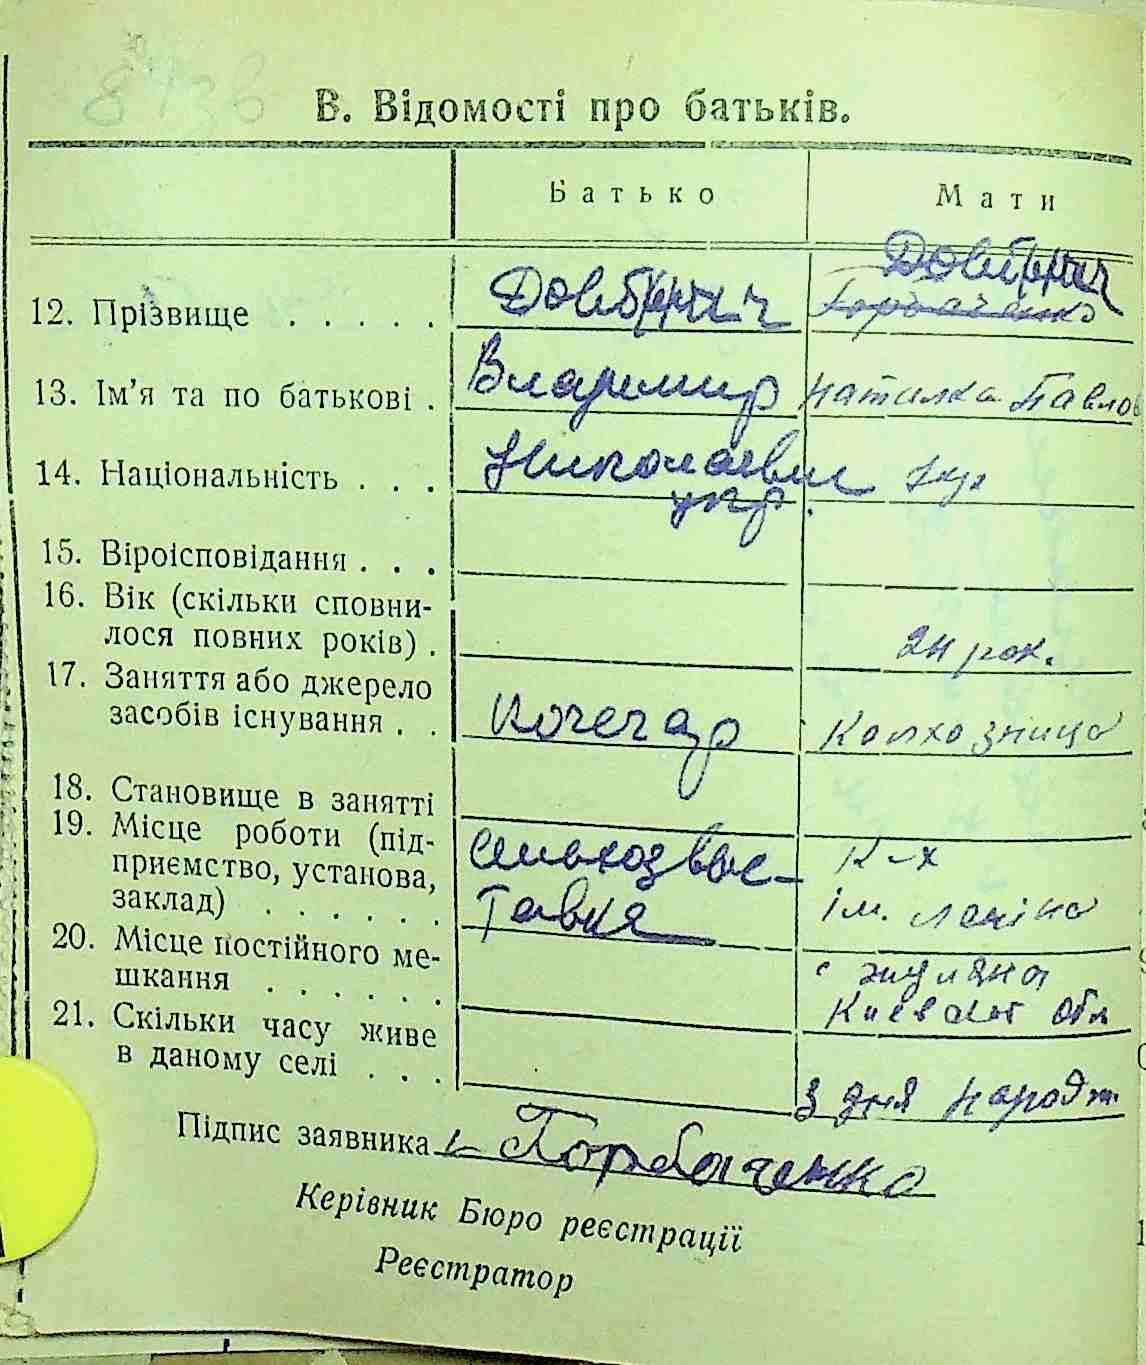 В. Відомості про батьків.
Батько Мати
Довбыш
12. Прізвище . . . . . Довбыш Горбаченко
13. Ім'я та по батькові . Владимир Наталка Павлов
14. Національність . . . Николаевич укр.
укр.
15. Віроісповідання . . .
16. Вік (скільки сповни-
лося повних років) . 24 рок.
17. Заняття або джерело
засобів існування . . кочегар Колхозница
18. Становище в занятті
19. Місце роботи (під- сельхозвыс- К-х
приємство, установа,
заклад) . . . . . . тавка ім. Леніна
20. Місце постійного ме- с
шкання . . . . . . Киевской обл
21. Скільки часу живе
в даному селі . . . з дня народж.
Підпис заявника Горбаченко
Керівник Бюро реєстрації
Реєстратор